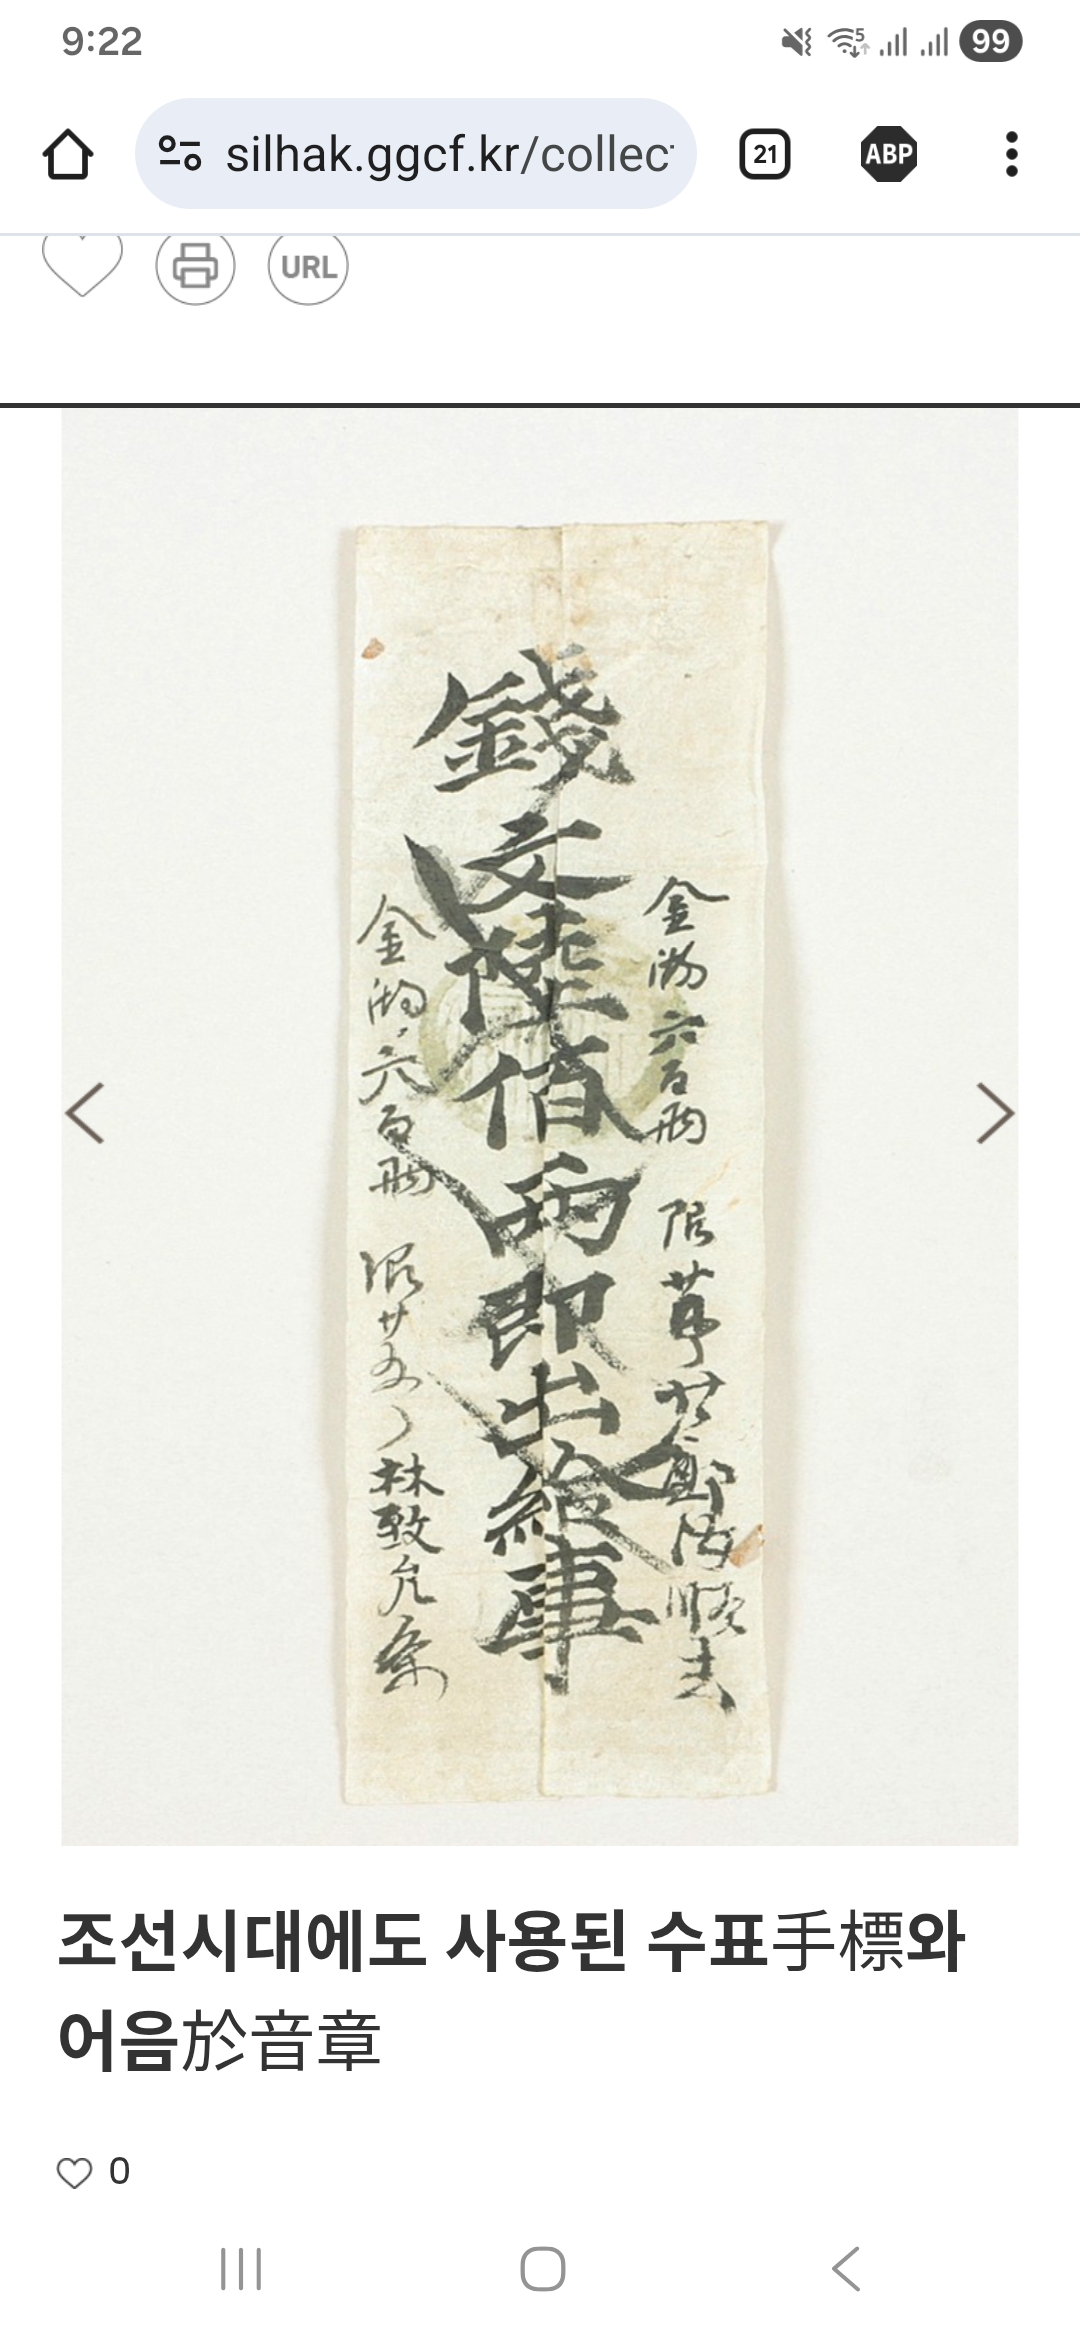 9:22
5
99
silhak.ggcf.kr/collec
21
ABP
URL
錢文陸佰兩卽出給事
金 六百兩 限
金 六百兩 限廿五 林致允
조선시대에도 사용된 수표手標와
어음於音章
0